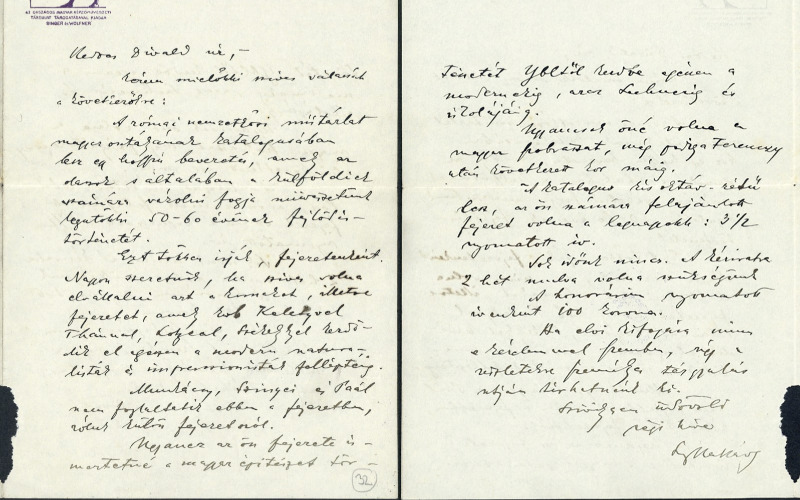 AZ ORSZÁGOS MAGYAR KÉPZŐMŰVÉSZETI
TÁRSULAT TÁMOGATÁSÁVAL KIADJA
SINGER ÉS WOLFNER
Kedves Divald úr, –
Kérem mielőbbi szives válaszát
a következőkre:
A római nemzetközi műtárlat
magyar osztályának katalogusában
lesz egy hosszú bevezetés, amely az
olaszok s általában a külföldiek
számára vázolni fogja művészetünk
legutóbbi 50-60 évének fejlődés-
történetét.
Ezt többen irják, fejezetenként.
Nagyon szeretnők, ha szives volna
elvállalni azt a korszakot, illetve
fejezetet, amely
Thánnal, Lotzcal, Székellyel kezdő-
dik el egészen a modern natura-
listák és impressionisták felléptéig.
Munkácsy, Szinyei és Paál
nem foglaltatik ebben a fejezetben,
róluk külön fejezet szól.
Ugyancsak az ön fejezete is-
mertetné a magyar épitészet tör-
32
ténetét Ybltől kezdve egészen a
modernekig, azaz Lechnerig és
iskolájáig.
Ugyancsak öné volna a
magyar szobrászat, még pedig Ferenczy
után következett kor máig.
A katalogus kis oktáv-rétű
lesz, az ön számára felajánlott
fejezet volna a legnagyobb: 3½
nyomatott ív.
Sok időnk nincs. A kéziratra
2 hét mulva volna szükségünk
A honorárium nyomatott
ivenként 100 korona.
Ha elvi kifogása nincs
a kérelemmel szemben, úgy a
részletekre személyes tárgyalás
utján térhetnénk ki.
Szivélyesen üdvözli
régi hive
Lyka Károly